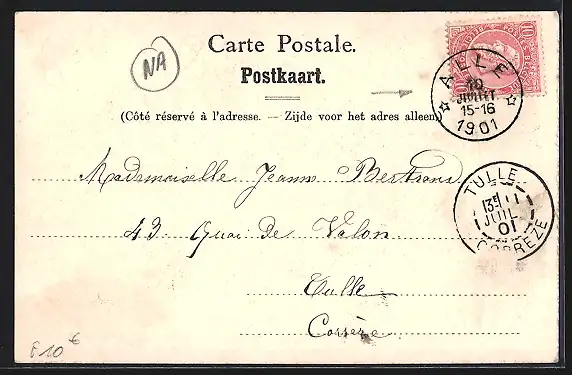 NA
Carte Postale.
Postkaart.
(Côté réservé à l'adresse. — Zijde voor het adres alleen)
ALLE
10
JUILLET
15-16
1901
Mademoiselle Jeanne Bertrand
43 Quai de Valon
Tulle
Corrèze
TULLE
JUIL
01
CORREZE
10 €